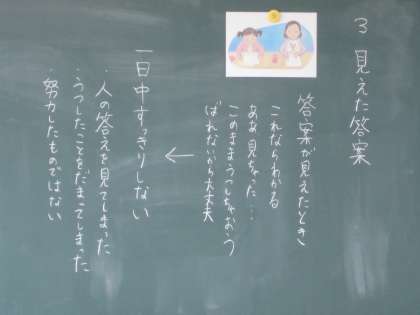 3 見えた答案
答案が見えたとき
これならわかる
ああ見ちゃった…
このままうつしちゃおう
ばれないから大丈夫
←
一日中すっきりしない
・人の答えを見てしまった
・うつしたことをだまってしまった
・努力したものではない